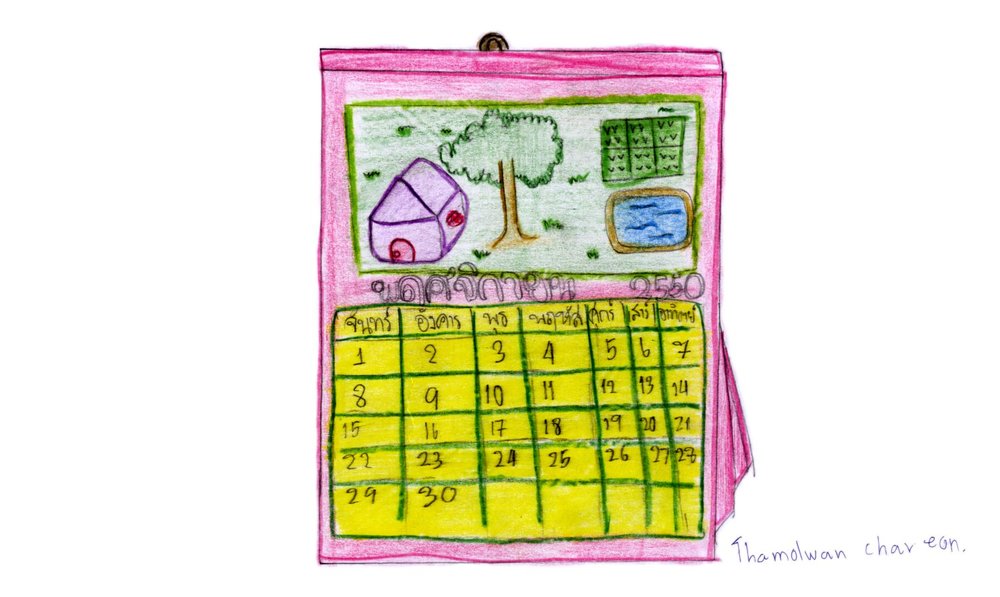 พฤศจิกายน 2550
จันทร์ อังคาร พุธ พฤหัส ศุกร์ เสาร์ อาทิตย์
1 2 3 4 5 6 7
8 9 10 11 12 13 14
15 16 17 18 19 20 21
22 23 24 25 26 27 28
29 30
Thamolwan chareon.